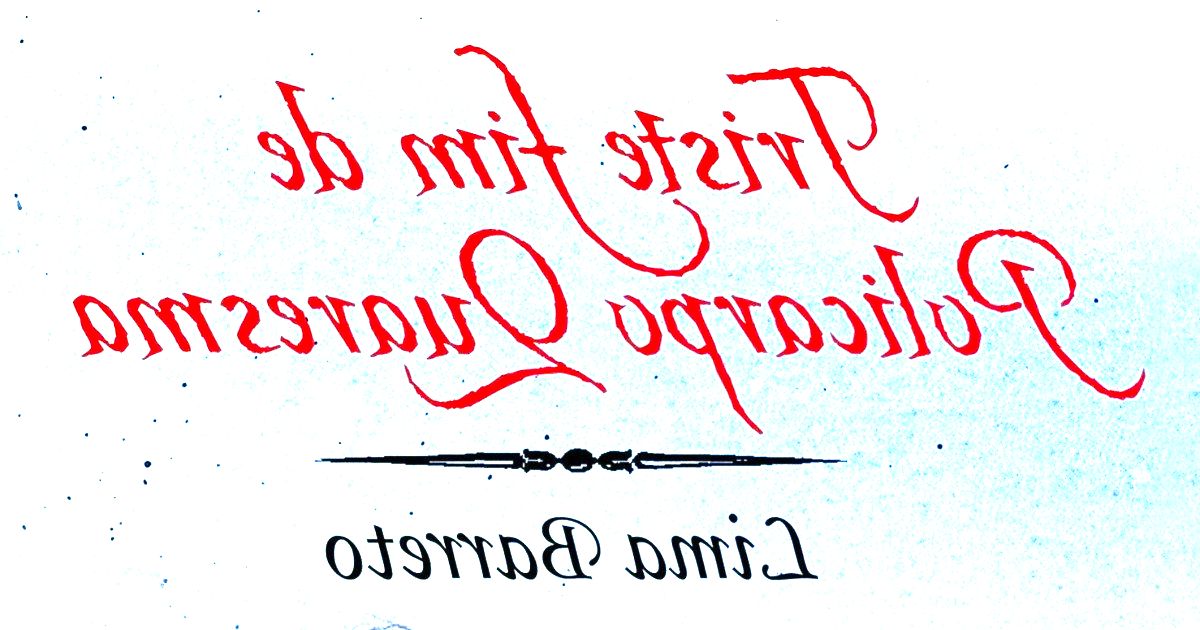 Triste fim de
Policarpo Quaresma
Lima Barreto